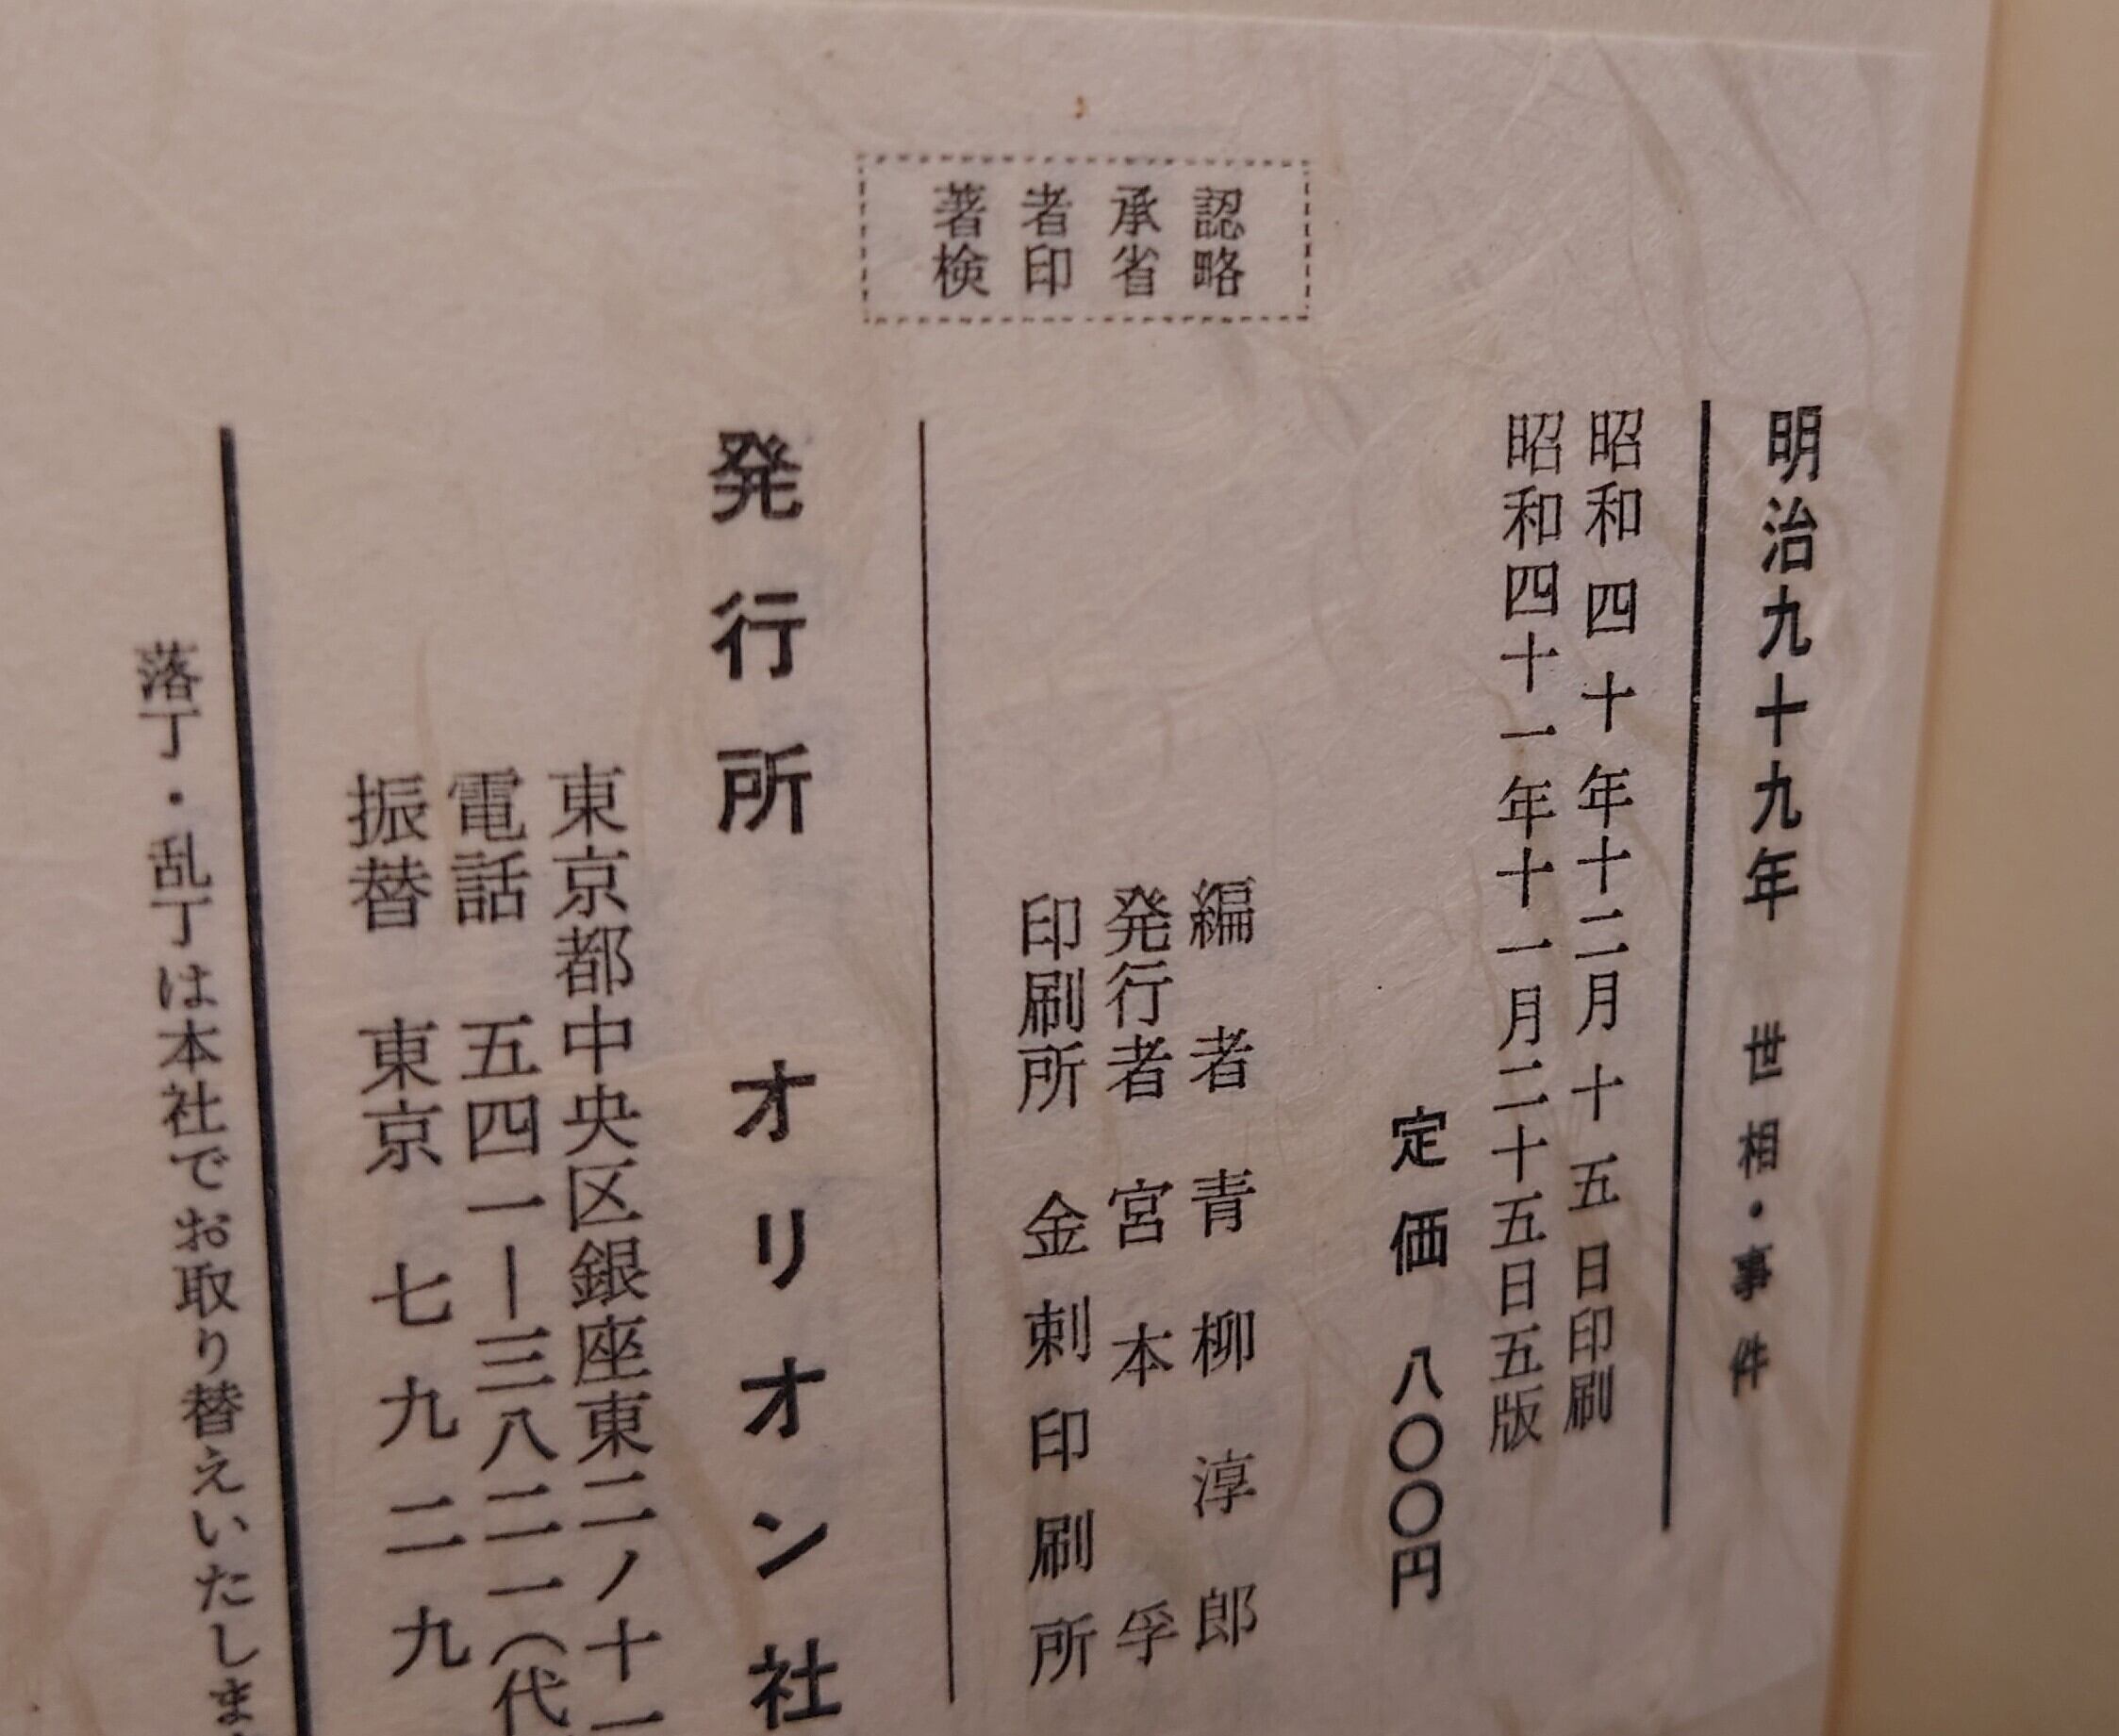 認略
承省
者印
著検
明治九十九年　世相・事件
昭和四十年十二月十五日印刷
昭和四十一年十一月二十五日五版
定価　八〇〇円
編者　青柳淳郎
発行者　宮本　孚
印刷所　金刺印刷所
発行所　オリオン社
東京都中央区銀座東二ノ十一
電話　五四一ー三八二一（代
振替　東京　七九二九
落丁・乱丁は本社でお取り替えいたしま